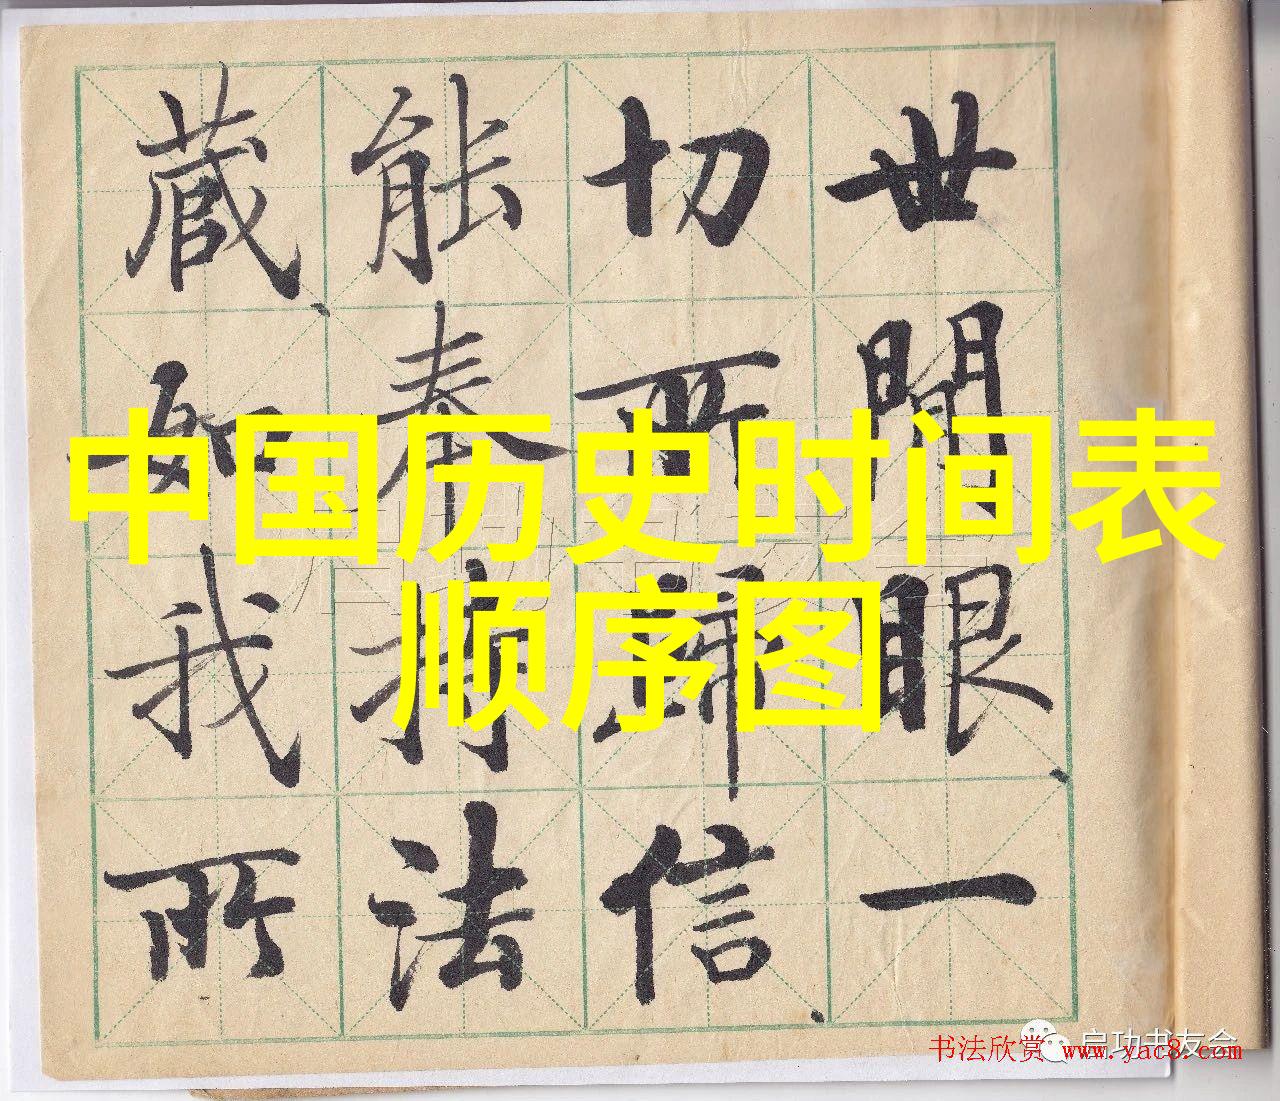 世間眼一
切所歸信
能奉持法
藏如我所
中国历史时间表
顺序图
启功书友会
书法欣赏 www.yac8.com